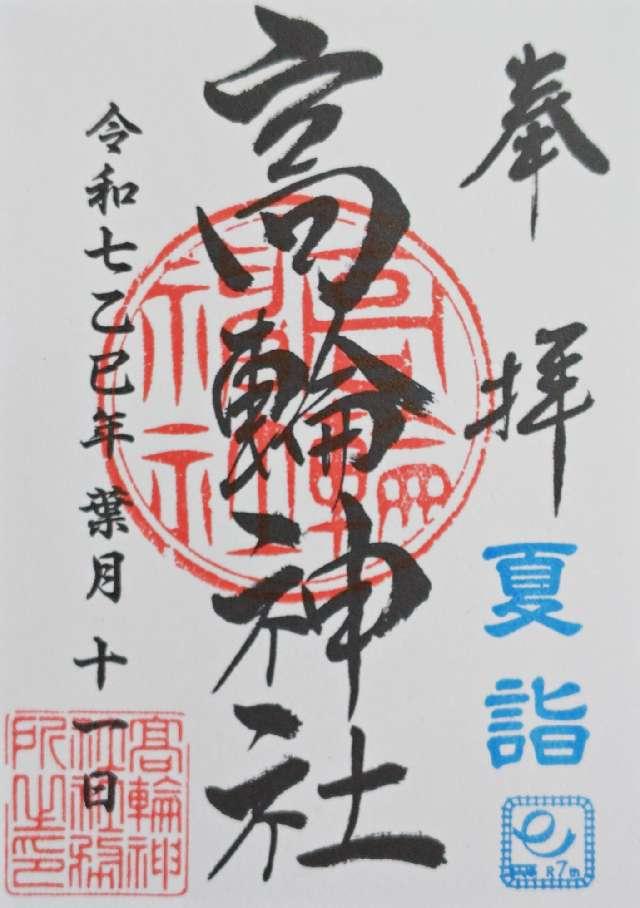 奉拝
夏詣
R7th
高輪神社
高輪神社
令和七乙巳年 葉月 十一日
高輪神
社社務
所之印